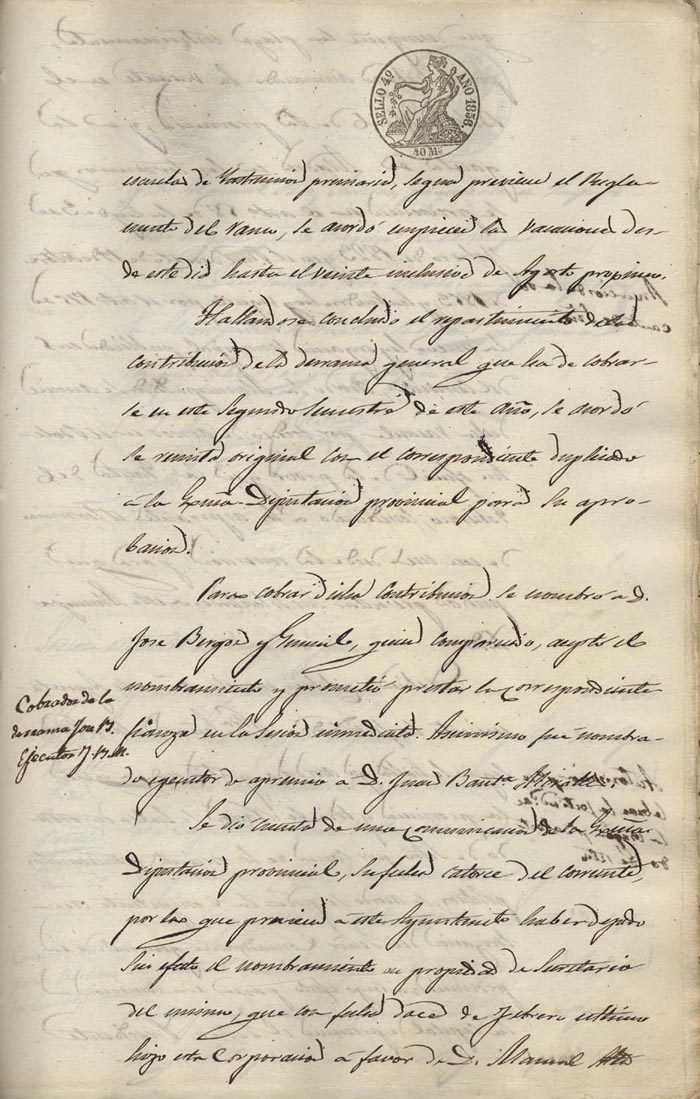 SELLO 4º AÑO 1856.
40 Ms
escuelas de Instruccion primaria, segun previene el Regla-
mento del ramo, se acordó empiecen las vacaciones des-
de este dia hasta el veinte inclusive de Agosto proximo.
Hallandose concluido el repartimiento de la
contribucion de la derrama general que ha de cobrar-
se en este segundo semestre de este año, se acordó
se remita original con el correspondiente duplicado
a la Exma Diputacion provincial para su apro-
bacion.
Para cobrar dicha contribucion se nombró a D.
Jose Burgos y, quien comparecido, aceptó el
nombramiento y prometió prestar la correspondiente
fianza en la sesion inmediata. Asimismo fue nombra-
do egecutor de apremio a D. Juan Bauta.
Cobrador de la
derrama Jose B.
Ejecutor J. B. M.
Se dió cuenta de una comunicacion de la Exma
Diputacion provincial, su fecha catorce del corriente,
por la que previene a este Ayuntamiento haber dejado
sin efecto el nombramiento en propiedad de Secretario
del mismo, que con fecha doce de Febrero ultimo
hizo esta Corporacion a favor de D. Manuel